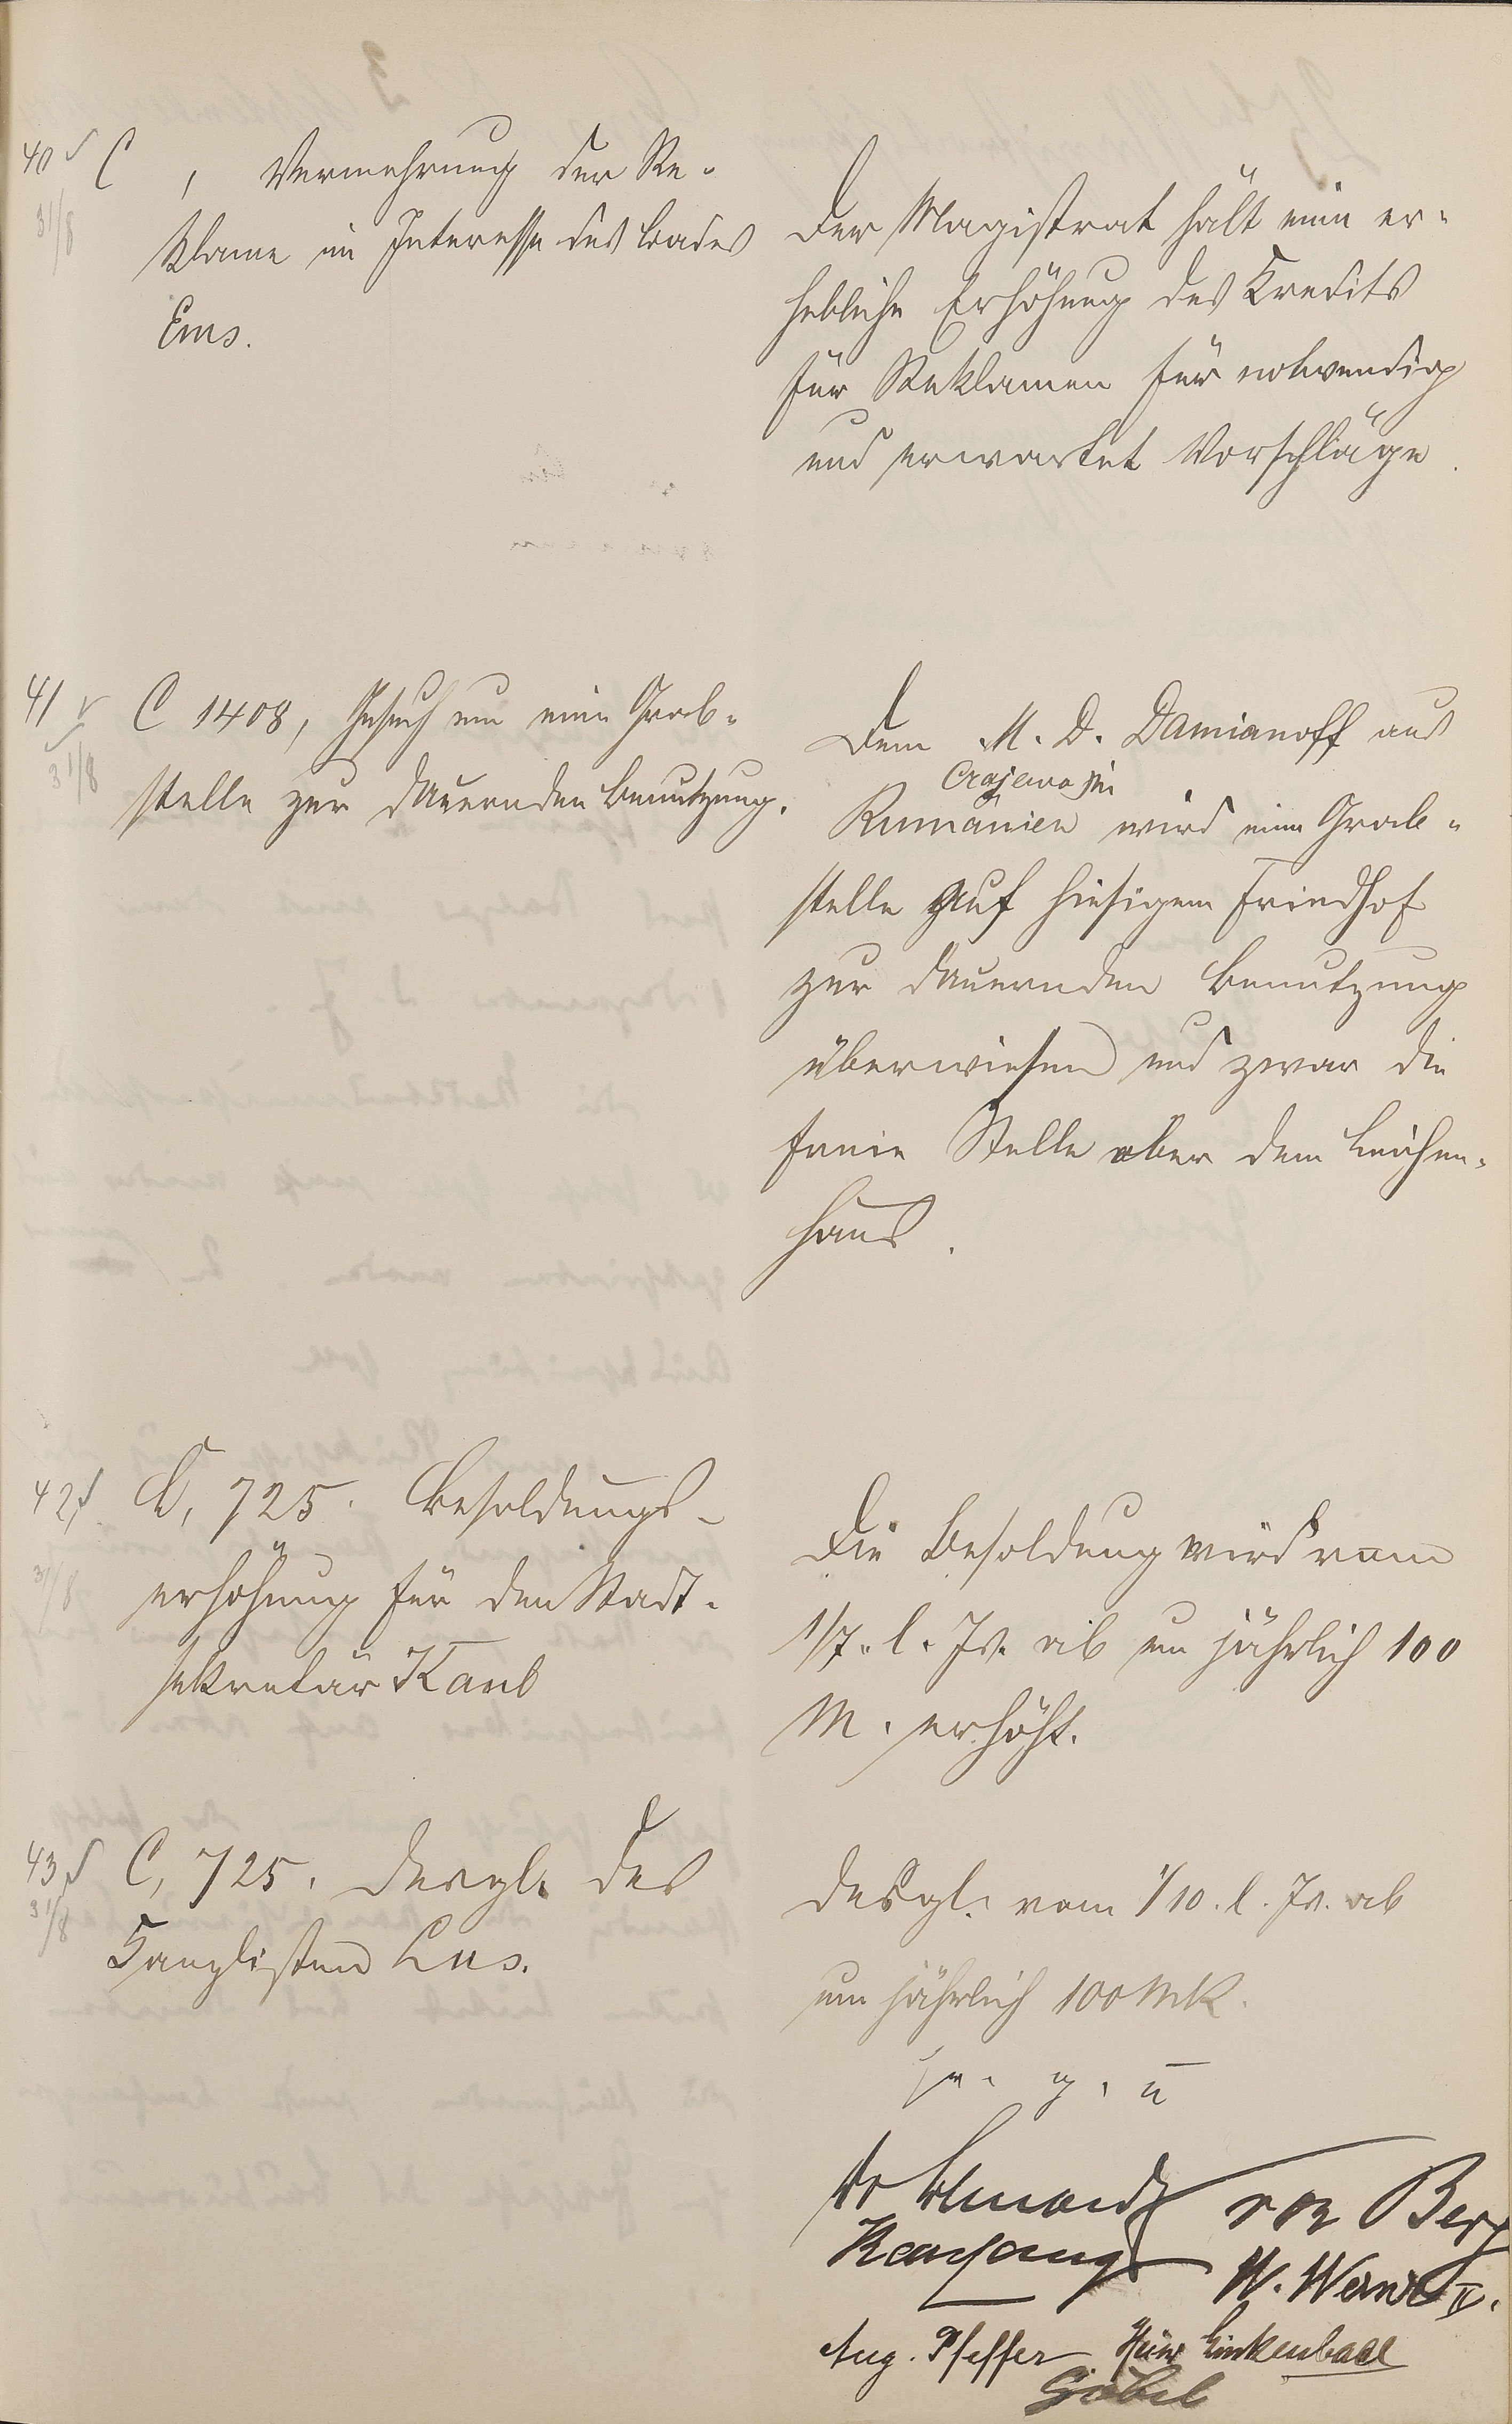 40 C , Vermehrung der Re-
31/8
klame im Interesse des Bades
Ems.
Der Magistrat hält eine er-
hebliche Erhöhung des Kredits
für Reklamen für notwendig
und erwartet Vorschläge.
41 C 1408, Gesuch um eine Grab-
31/8
stelle zur dauernden Benutzung.
Dem M. D. Damianoff aus
Crajewa in
Rumänien wird eine Grab-
stelle auf hiesigem Friedhof
zur dauernden Benutzung
überwiesen und zwar die
freie Stelle ober dem Leichen-
haus.
42 C, 725. Besoldungs-
31/8
erhöhung für den Stadt-
sekretär Kaul
Die Besoldung wird vom
1/7. l. Js. ab um jährlich 100
M. erhöht.
43 C, 725. Desgl. des
31/8
Kanzlisten Lus.
Desgl. vom 1/10. l. Js. ab
um jährlich 100 Mk.
v. g. u
von Berg
W. Werner II.
Aug. Pfeffer Heinr Linkenbach
Göbel